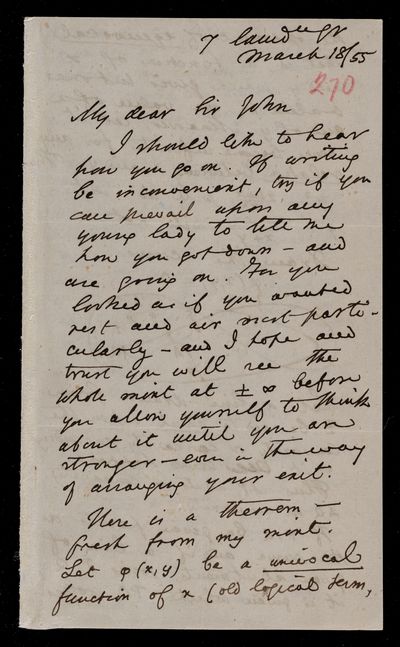 7 Camdn Gr
March 18/55
270
My dear Sir John
I should like to hear
how you go on. If writing
be inconvenient, try if you
can prevail upon any
young lady to tell me
how you got down – and
are going on. For you
looked as if you wanted
rest and air most parti-
cularly – and I hope and
trust you will see the
whole mint at ± ∞ before
you allow yourself to think
about it until you are
stronger – even in the way
of arranging your exit.
Here is a theorem –
fresh from my mint.
Let φ(x,y) be a univocal
function of x (old logical term,